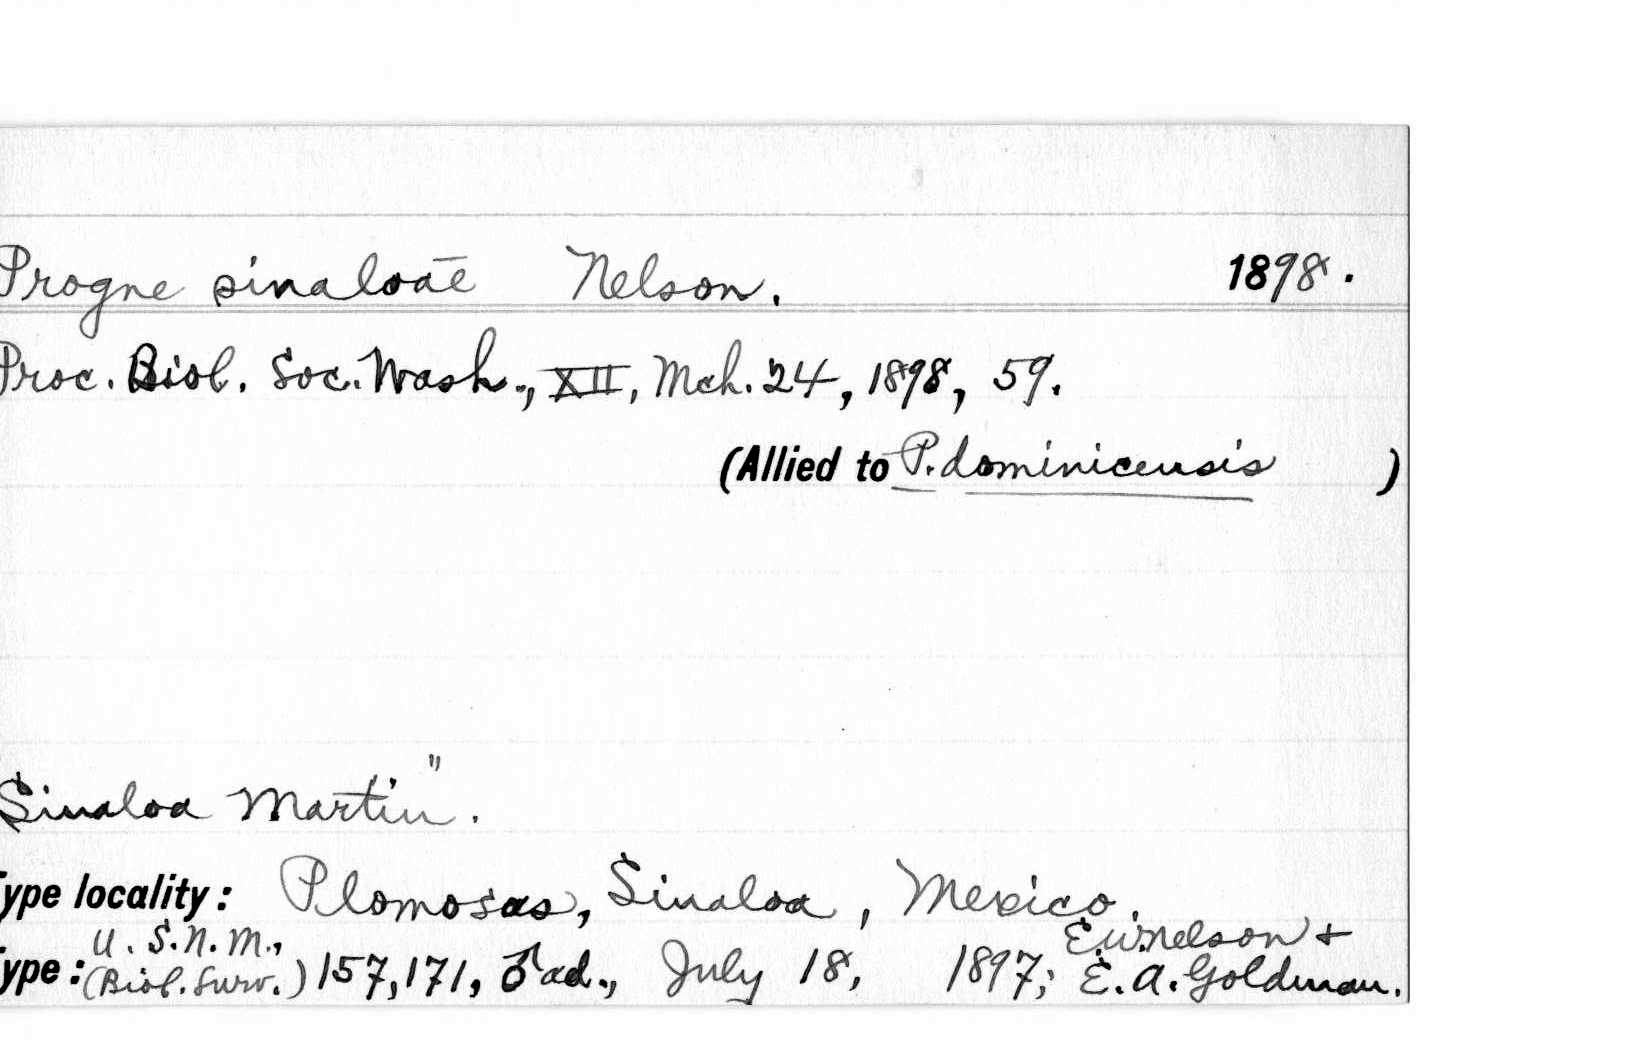 Progne sinaloae Nelson. 1898.
Proc. Biol. Soc. Wash., XII, Mch. 24, 1898, 59.
(Allied to P. dominicensis )
Sinaloa Martin".
ype locality: Plomosas, Sinaloa, Mexico.
U.S.N.M., E.W. Nelson +
ype: (Biol. Surv.) 157,171, ♂ ad., July 18, 1897; E. A. Goldman.